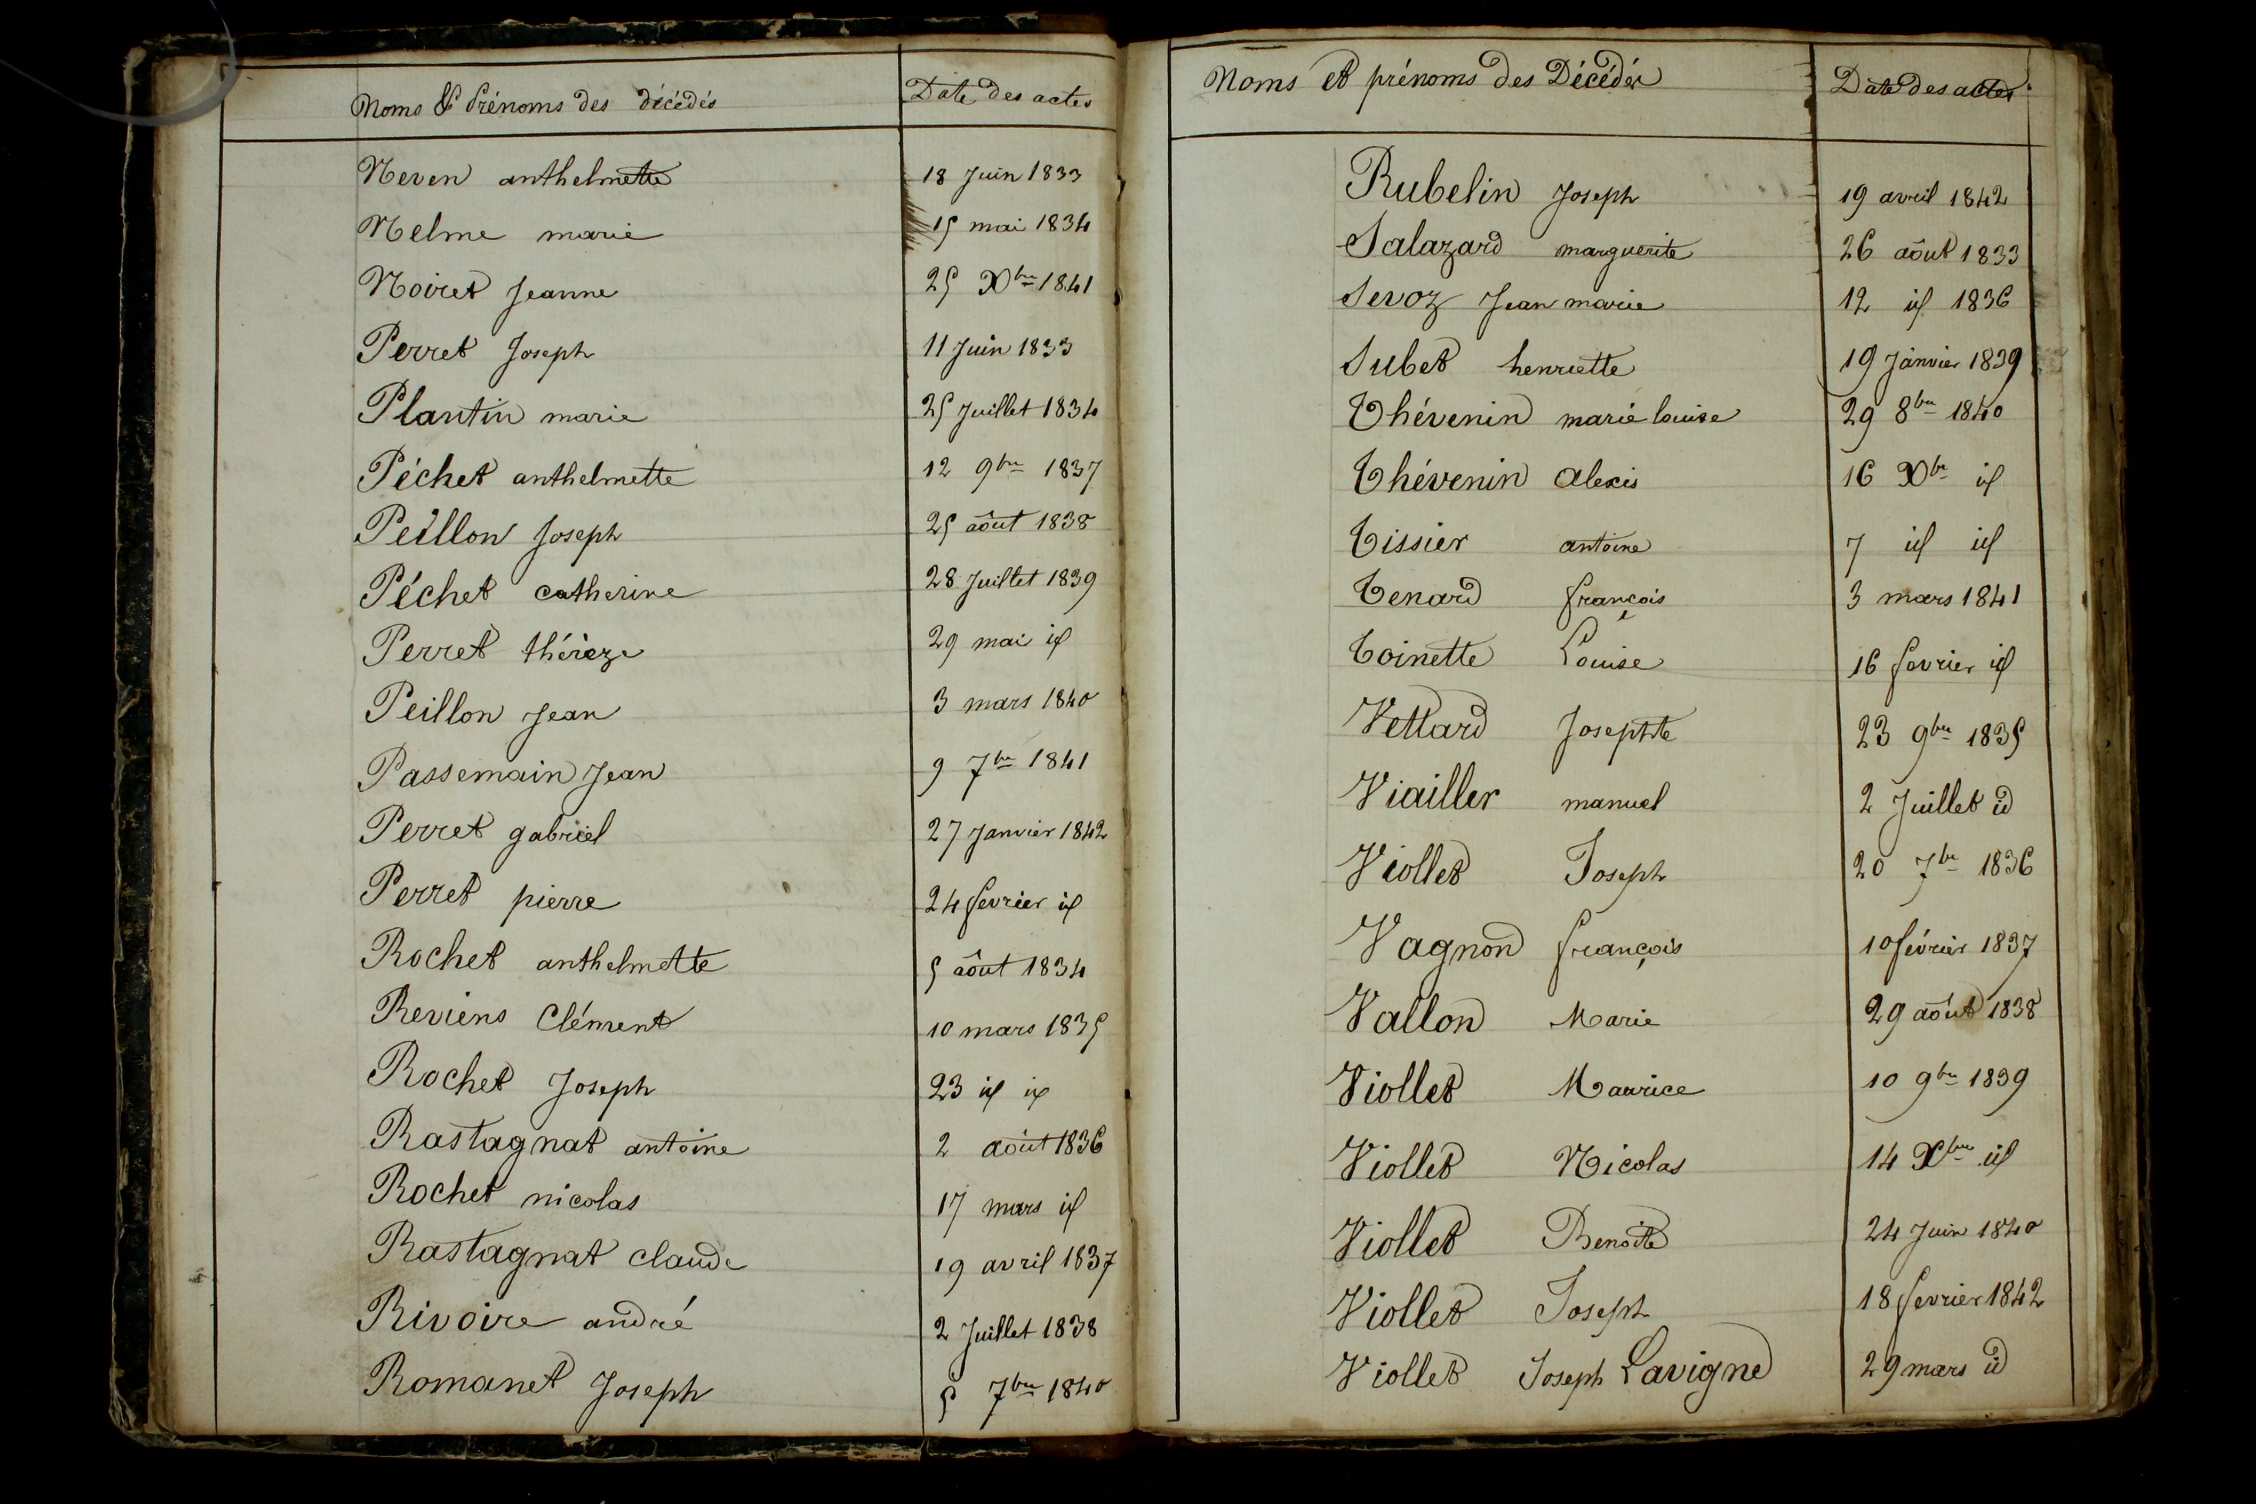 Noms & Prénoms des décédés Date des actes
Neven anthelmette 18 Juin 1833
Nelme marie 15 mai 1834
Noiret Jeanne 25 Xbre 1841
Perret Joseph 11 Juin 1833
Plantin marie 25 Juillet 1834
Péchet anthelmette 12 9bre 1837
Peillon Joseph 25 août 1838
Péchet catherine 28 Juillet 1839
Perret thérèze 29 mai id
Peillon Jean 3 mars 1840
Passemain Jean 9 7bre 1841
Perret gabriel 27 Janvier 1842
Perret pierre 24 fevrier id
Rochet anthelmette 5 août 1834
Reviens Clément 10 mars 1835
Rochet Joseph 23 id id
Rastagnat antoine 2 août 1836
Rochet nicolas 17 mars id
Rastagnat claude 19 avril 1837
Rivoire andré 2 Juillet 1838
Romanet Joseph 5 7bre 1840
Noms et prénoms des Décédés Date des actes
Rubelin Joseph 19 avril 1842
Salazard marguerite 26 août 1833
Sevoz Jean marie 12 id 1836
Subet henriette 19 Janvier 1839
Thévenin marie louise 29 8bre 1840
Thévenin alexis 16 Xbre id
Tissier antoine 7 id id
Tenard françois 3 mars 1841
Toinette Louise 16 fevrier id
Vettard Josephte 23 9bre 1835
Viailler manuel 2 Juillet id
Viollet Joseph 20 7bre 1836
Vagnon françois 10 février 1837
Vallon Marie 29 août 1838
Viollet Maurice 10 9bre 1839
Viollet Nicolas 14 Xbre id
Viollet Benoite 24 Juin 1840
Viollet Joseph 18 fevrier 1842
Viollet Joseph Lavigne 29 mars id